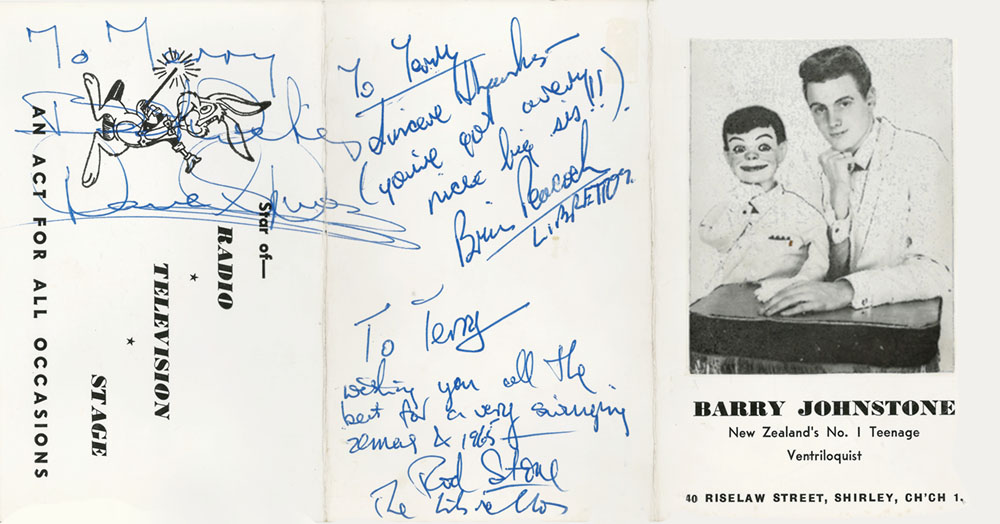 To Merry
Best Wishes
Star of—
RADIO
★
TELEVISION
★
STAGE
AN ACT FOR ALL OCCASIONS
To Terry
Sincere Thanks
(you've got a very
nice big sis!!)
Brian Peacock
LIBRETTOS.
To Terry
wishing you all the
best for a very swinging
xmas & 1965
Rod Stone
The Librettos
BARRY JOHNSTONE
New Zealand's No. 1 Teenage
Ventriloquist
40 RISELAW STREET, SHIRLEY, CH'CH 1.